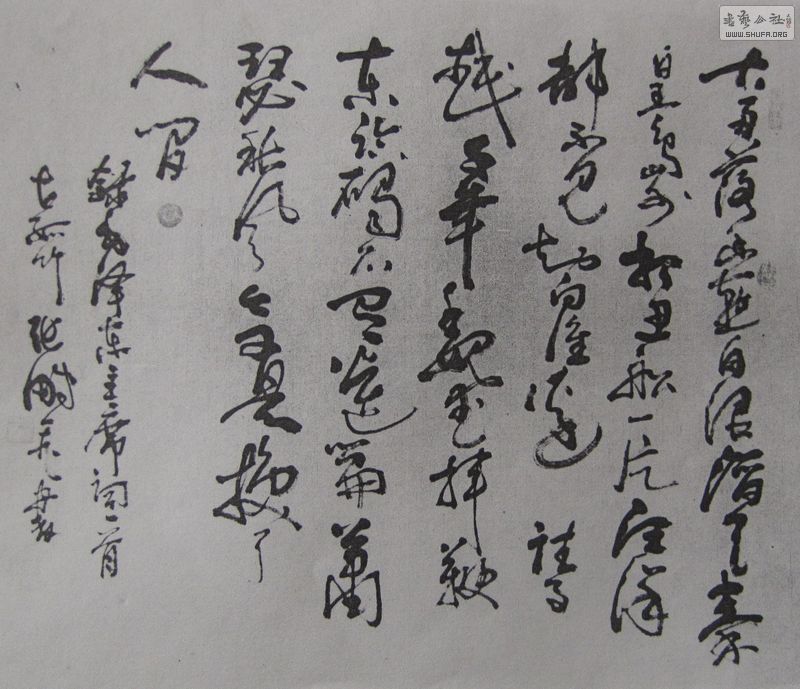 大雨落幽燕白浪滔天秦
皇岛外打鱼船一片汪洋
都不见知向谁边往事
越千年魏武挥鞭
东临碣石有遗篇萧
瑟秋风今又是换了
人间
录毛泽东主席词一首
古孤竹张书
书艺公社
WWW.SHUFA.ORG